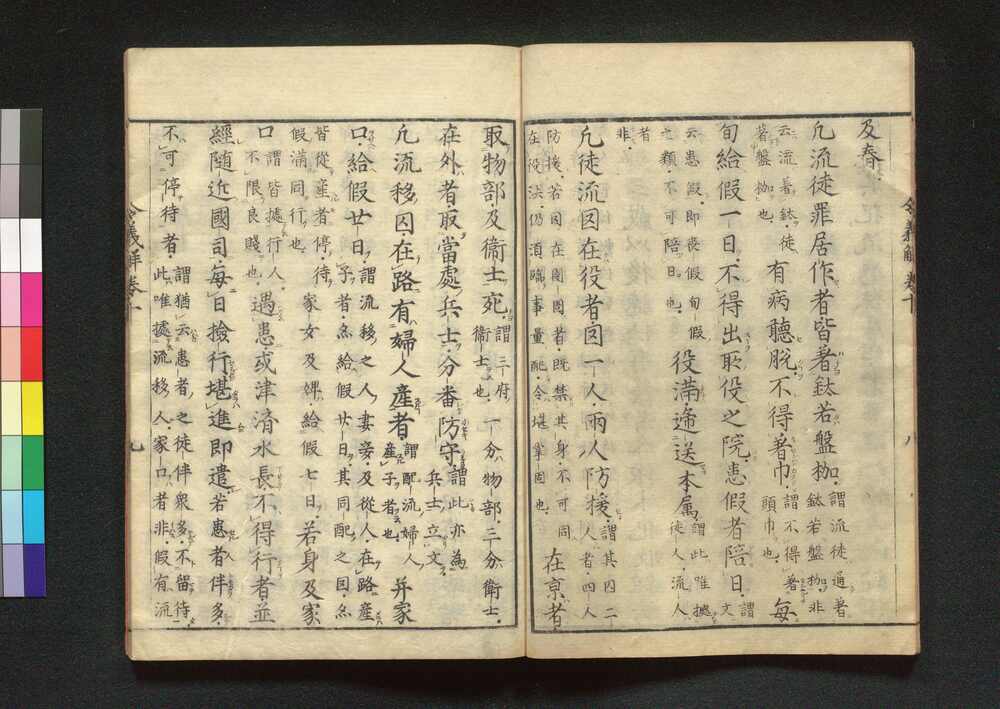 及春
凡流徒罪居作者皆著鈦若盤枷謂流徒通著鈦若盤枷非
云流著鈦徒著盤枷也有病聽脱不得著巾謂不得著頭巾也毎
旬給假一日不得出所役之院患假者陪日謂文
云患假即喪假旬假之類不可陪日也役滿遞送本属謂此唯據徒人流人
者非
凡徒流囚在役者囚一人兩人防援謂其囚二人者四人
防援若囚在囹圄者既禁其身不可同在役法仍須臨事量配令堪掌固也在京者
取物部及衛士充謂三府衛士也一分物部三分衛士
在外者取當處兵士分番防守謂此亦為兵士立文
凡流移囚在路有婦人産者謂配流婦人産子者也并家
口給假廿日謂流移之人妻妾及從人在路産子者亦給假廿日其同配之囚亦
皆從産者停待假滿同行也家女及婢給假七日若身及家
口謂皆據行人不限良賤也遇患或津濟水長不得行者並
經随近國司毎日撿行堪進即遣若患者伴多
不可停待者謂猶云患者之徒伴衆多不留待此唯據流移人家口者非假有流
令義解卷十
八
令義解卷十
九